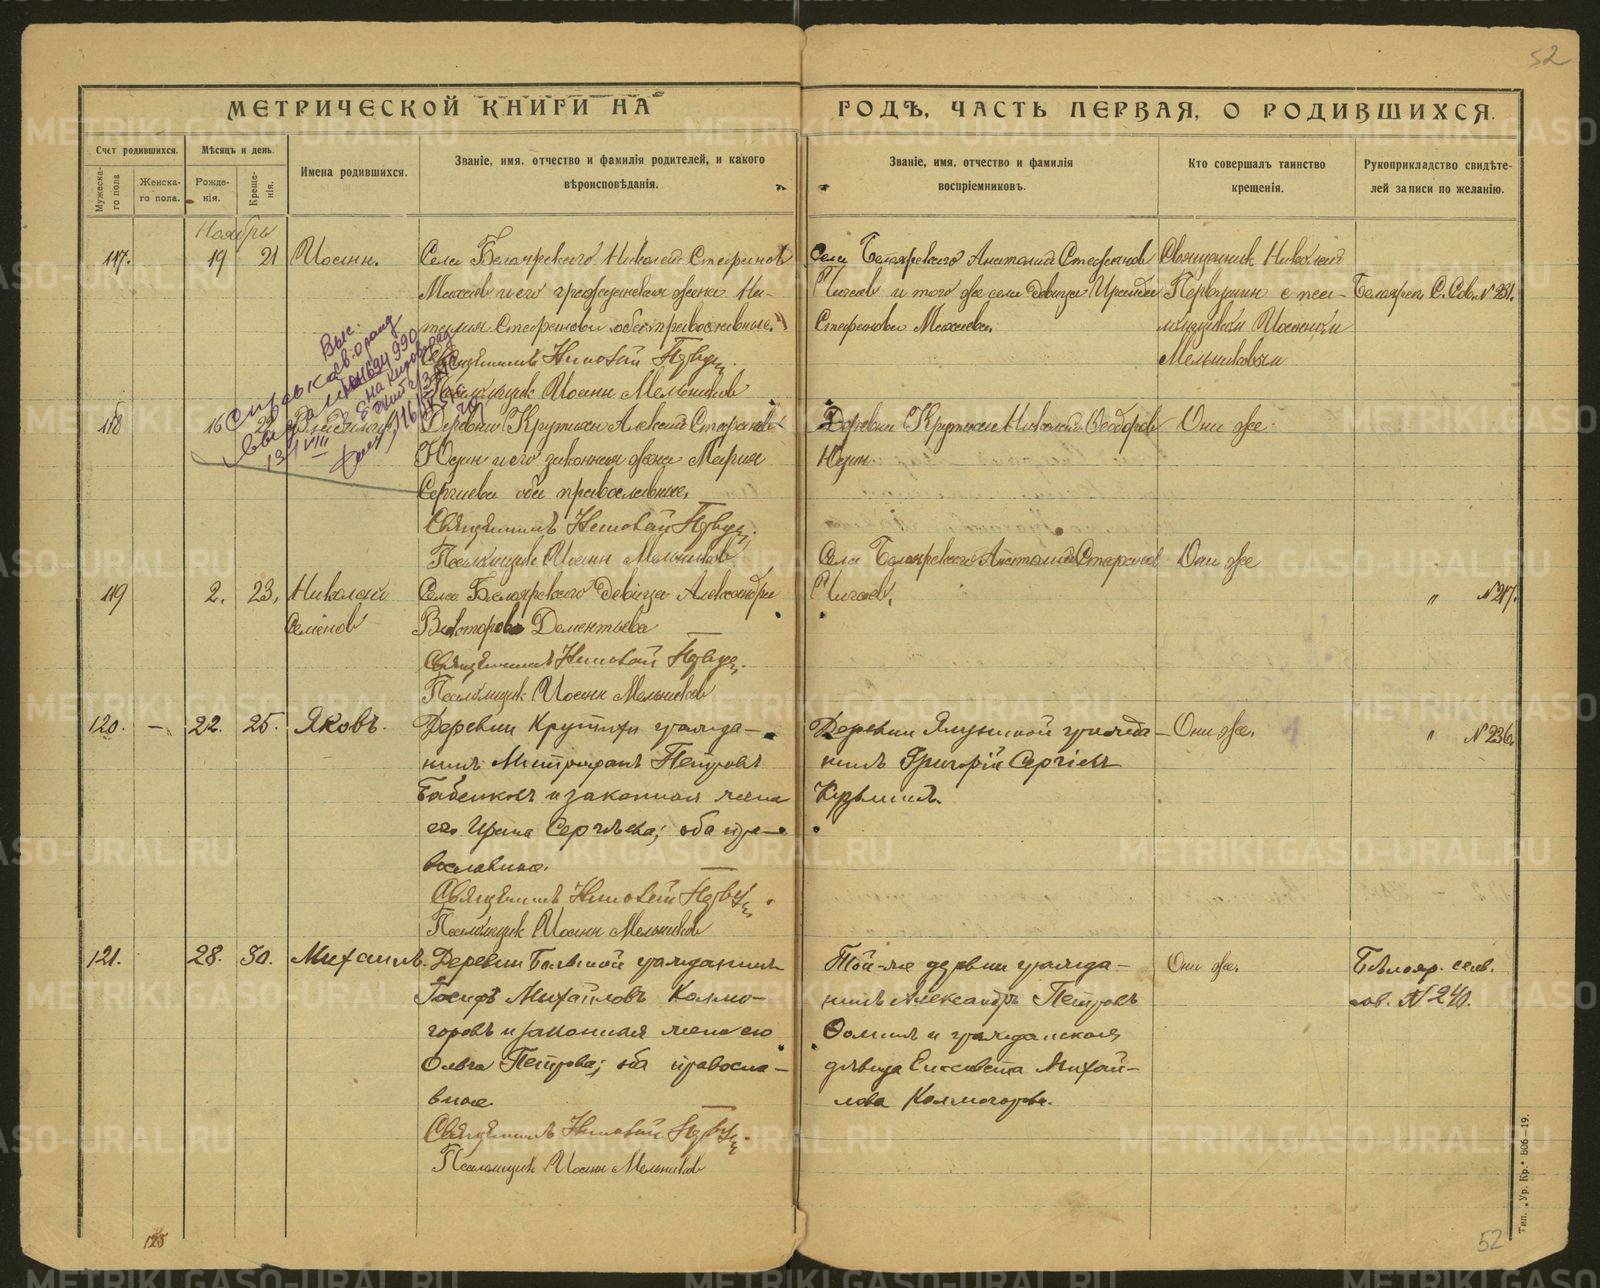 52
МЕТРИЧЕСКОЙ КНИГИ НА ГОДЪ, ЧАСТЬ ПЕРВАЯ, О РОДИВШИХСЯ.
Счет родившихся.
Мужеска-го пола
Женска-го пола.
Мѣсяцъ и день.
Рожде-нія.
Креще-нія.
Имена родившихся.
Званіе, имя, отчество и фамилія родителей, и какого вѣроисповѣданія.
Званіе, имя, отчество и фамилія воспріемниковъ.
Кто совершалъ таинство крещенія.
Рукоприкладство свидѣте-лей записи по желанію.
Ноябрь
117. 19 21 Иоанн.
Села Белоярского Николай Стефанов
его гражданская жена На-
талия Стефанова оба православные.
Священникъ Николай
Псаломщик Иоанн Мельников
Села Белоярского Анатолий Стефанов
Чигаев и того же села девица
Стефанова
Священник Николай
с пса-
ломщиком Иоанном
Мельниковым
Белоярск. С. Сов. № 231.
118 16 22
Деревни Крутихи Алексей Стефанов
Юдин и его законная жена Мария
Сергиева оба православные.
Священникъ Николай
Псаломщик Иоанн Мельников
Деревни Крутихи Николай Феодоров
Юдин.
Они же
119 2. 23. Николай
Семёнов
Села Белоярского девица Александра
Викторова Дементьева
Священникъ Николай
Псаломщик Иоанн Мельников
Села Белоярского Анатолий Стефанов
Чигаев.
Они же
" № 217.
120. — 22. 25. Яковъ.
Деревни Крутихи гражда-
нинъ Митрофанъ Петровъ
и законная жена
его Ирина Сергѣева; оба пра-
вославные.
Священникъ Николай
Псаломщик Иоанн Мельников
Деревни гражда-
нинъ Григорій Сергіевъ
Кузьминъ.
Они же.
" № 236.
121. 28. 30. Михаилъ.
Деревни Большой гражданинъ
Іосифъ Михайловъ Колмо-
горовъ и законная жена его
Ольга Петрова; оба правосла-
вные.
Священникъ Николай
Псаломщик Иоанн Мельников
Той-же деревни гражда-
нинъ Александръ Петровъ
Фоминъ и гражданская
дѣвица Елисавета Михай-
лова Колмогорова.
Они же.
Бѣлояр. сел.
сов. № 240.
Тип. „Ур. Кр." 606—19.
125
52
METRIKI.GASO-URAL.RU